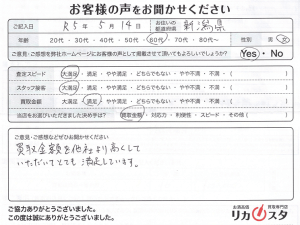 お客様の声をお聞かせください
ご記入日 R5年5月14日 お住いの都道府県 新潟県
年齢 20代・30代・40代・50代・60代・70代・80代～ 性別 男・女
ご意見・ご感想を弊社ホームページにお客様の声として掲載させて頂いてもよろしいでしょうか? Yes・No
査定スピード 大満足・満足・やや満足・どちらでもない・やや不満・不満・( )
スタッフ接客 大満足・満足・やや満足・どちらでもない・やや不満・不満・( )
買取金額 大満足・満足・やや満足・どちらでもない・やや不満・不満・( )
当店をお選びいただきました決め手は? 買取金額・対応力・利便性・スピード・その他( )
ご意見・ご感想などぜひお聞かせください
買取金額を他社より高くして
いただいてとても満足しています。
ご協力ありがとうございました。
この度は誠にありがとうございました。
お酒高価買取専門店
リカスタ